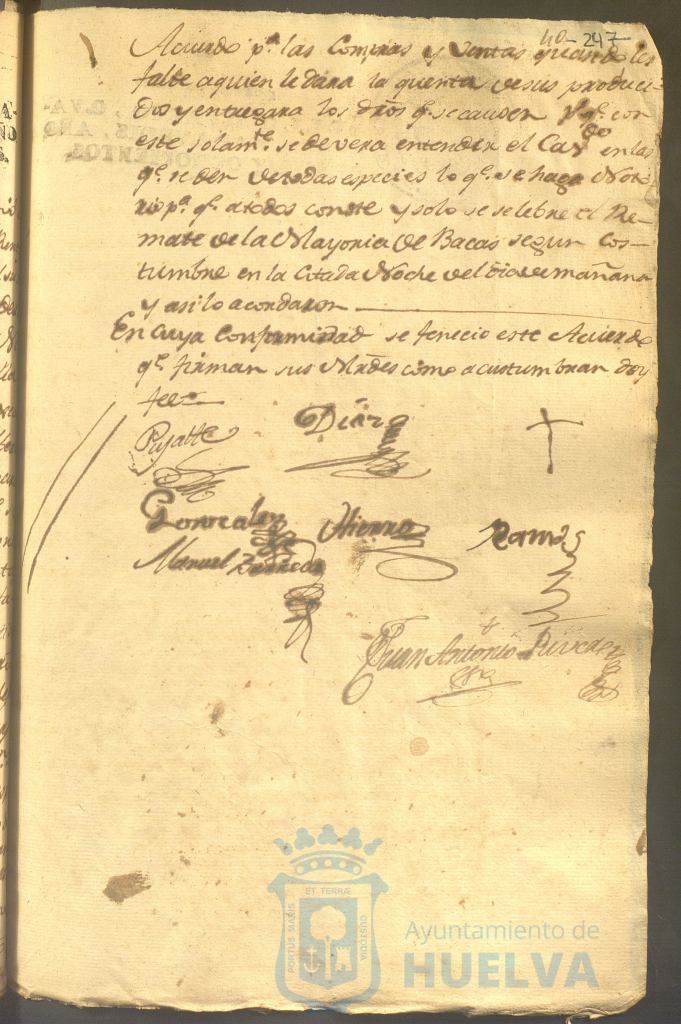 40-247
Acuerdo pª. las Compras y Ventas quando les
falte aquien le dara la quenta de sus produci-
Dos y entregara los dros q. se causen
este solamte. se devera entender el en las
q. se den de todas especies lo q. se haga Noto-
rio pª. q. atodos conste y solo se selebre el Re-
mate de la Mayoria de Bacas segun Cos-
tumbre en la Citada Noche del dia de mañana
y asi lo acordaron
En cuya Conformidad se fenecio este Acuerdo
q. firman sus Mrdes como acustumbran doy
fee
Pujalte Diaz
Gonzalez Hierro Ramos
Manuel
Juan Antonio
PORTUS MARIS ET TERRÆ CUSTODIA
Ayuntamiento de
HUELVA